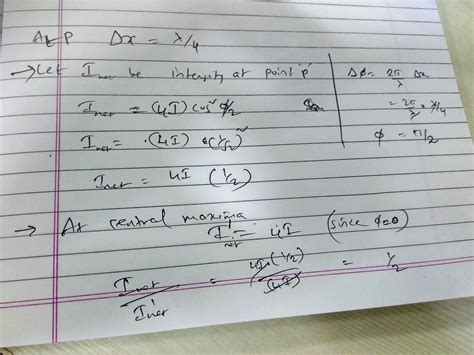 At P Δx = λ/4
→ Let I_net be intensity at point p
I_net = (4I) cos² φ/2
I_net = (4I) (1/√2)²
I_net = 4I (1/2)
Δφ = 2π/λ Δx
= 2π/λ × λ/4
φ = π/2
→ At central maxima
I'_net = 4I (since φ=0)
I_net/I'_net = 4I(1/2)/(4I) = 1/2